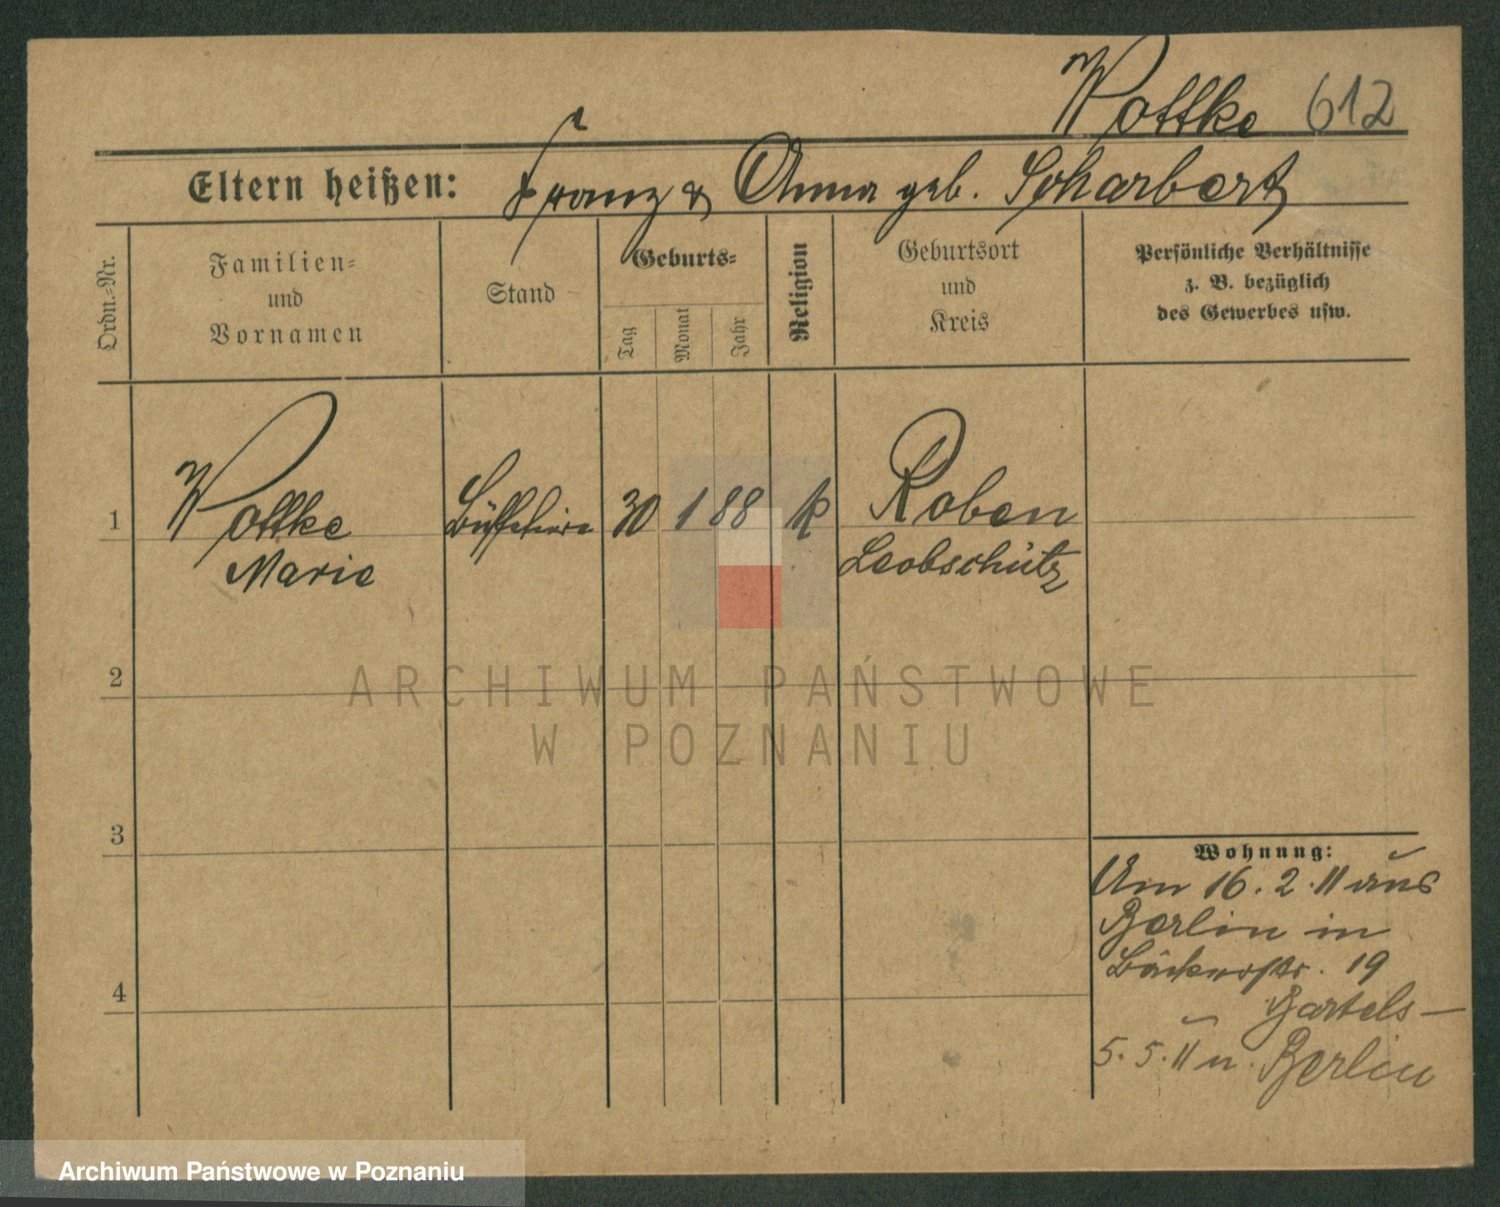 Wottke 612
Eltern heißen: Franz & Anna geb. Scharbert
Ordn.-Nr.
Familien-
und
Vornamen
Stand
Geburts-
Tag
Monat
Jahr
Religion
Geburtsort
und
Kreis
Persönliche Verhältnisse
z. B. bezüglich
des Gewerbes usw.
1 Wottke Büffetiere 30 1 88 k Roben
Marie Leobschütz
2
3
4
Wohnung:
Am 16.2.11 aus
Berlin in
Bäckerstr. 19
Bartels-
5.5.11 n. Berlin
ARCHIWUM PAŃSTWOWE
W POZNANIU
Archiwum Państwowe w Poznaniu